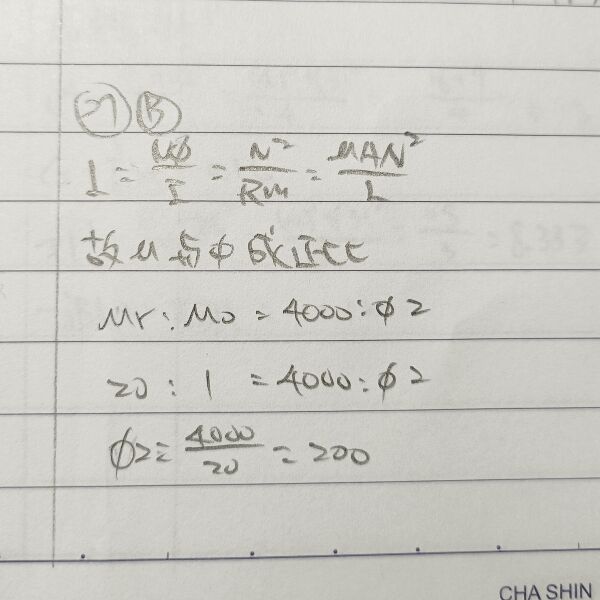 ㉗ Ⓑ
L = NΦ/I = N²/Rm = μAN²/L
故 μ 与 Φ 成正比
μr : μ0 = 4000 : Φ2
20 : 1 = 4000 : Φ2
Φ2 = 4000/20 = 200
CHA SHIN